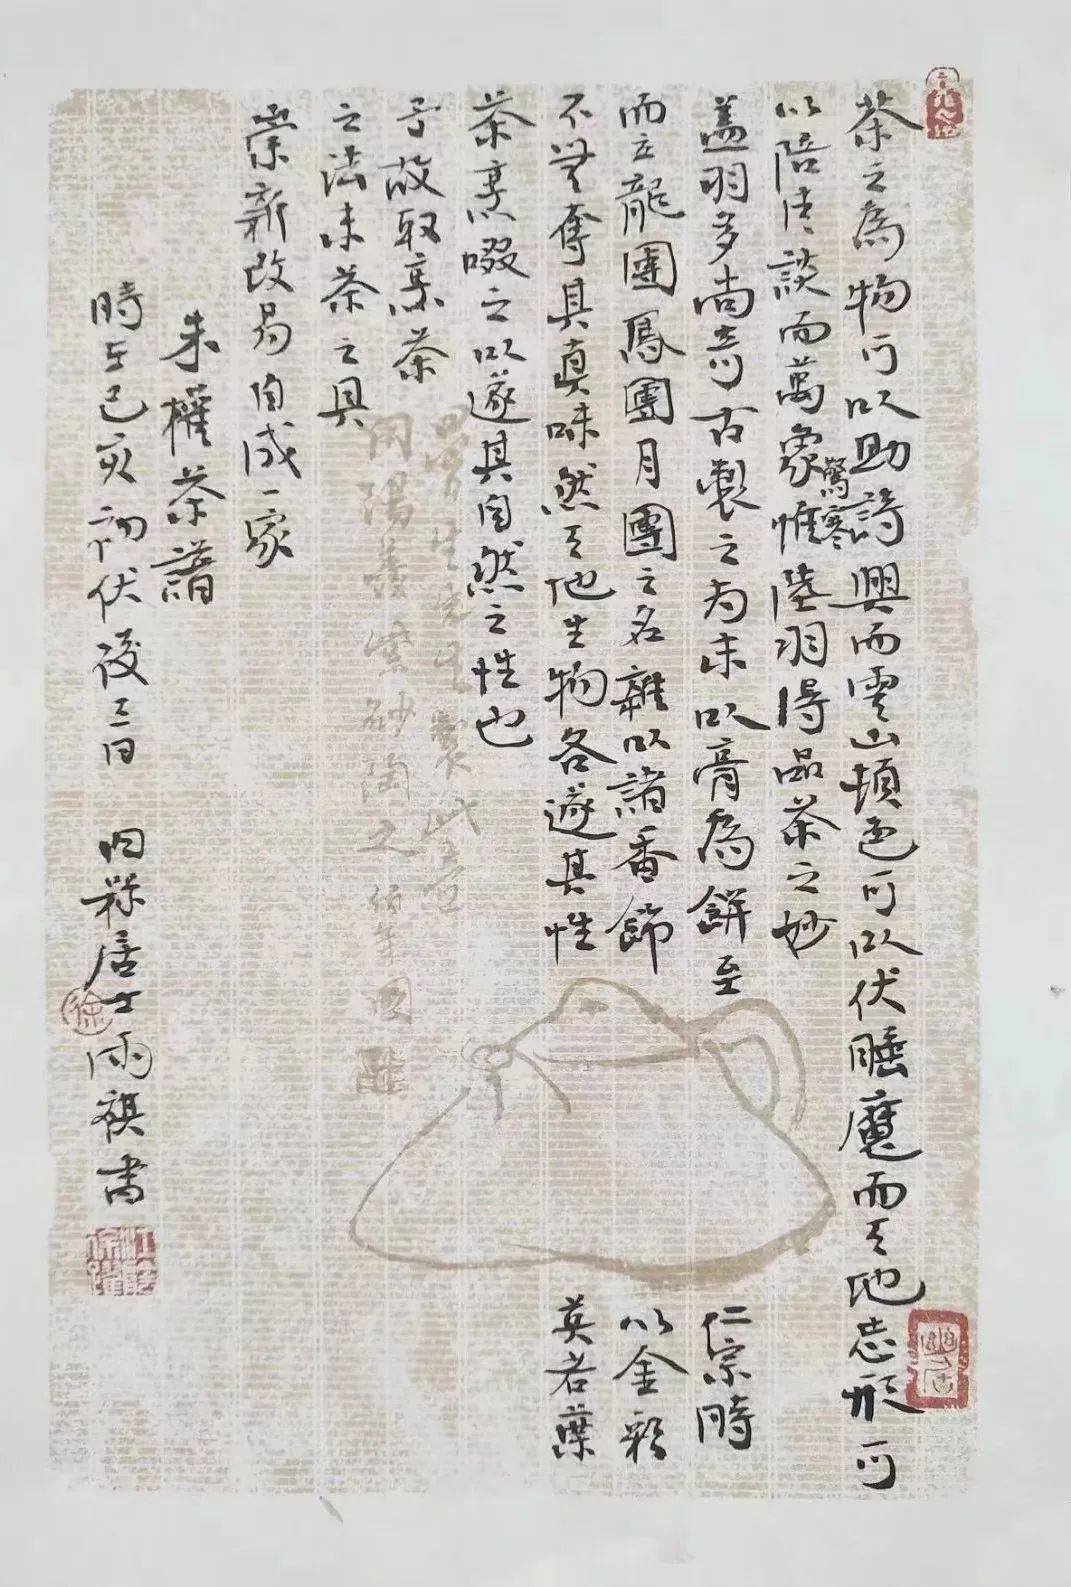 茶之為物可以助詩興而雲山頓色可以伏睡魔而天地忘形可
以陪清談而萬象驚寒惟陸羽得品茶之妙
蓋羽多尚奇古製之為末以膏為餅至仁宗時
而立龍團鳳團月團之名雜以諸香飾以金彩
不無奪其真味然天地生物各遂其性莫若葉
茶烹啜之以遂其自然之性也
予故取亨茶
之法末茶之具
崇新改易自成一家
朱權茶譜
時在己亥初伏後三日 居士雨祺書
徐